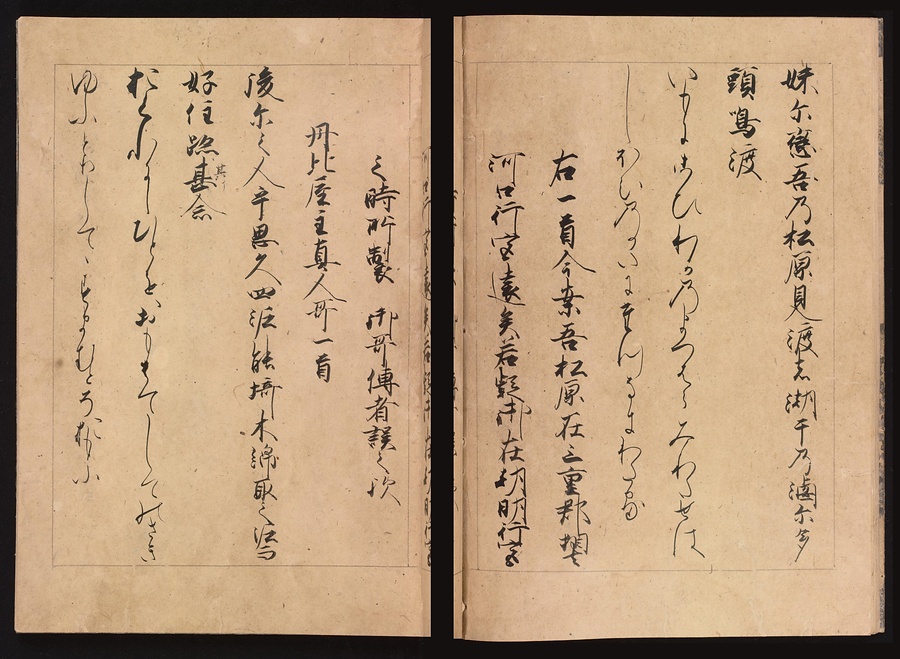 妹尓戀吾乃松原見渡者潮干乃滷尓多
頭鳴渡
いもにこひわかのまつはらみわたせは
しほひのかたにたつなきわたる
右一首今案吾松原在三重郡相去
河口行宮遠矣若疑御在朝明行宮
之時所製御哥傳者誤之歟
丹比屋主真人哥一首
後尓之人乎思久四泥能埼木綿取之泥而
好住跡甚念
其
おくれにしひとをおもはくしてのさき
ゆふとりしてゝすまむとそおもふ